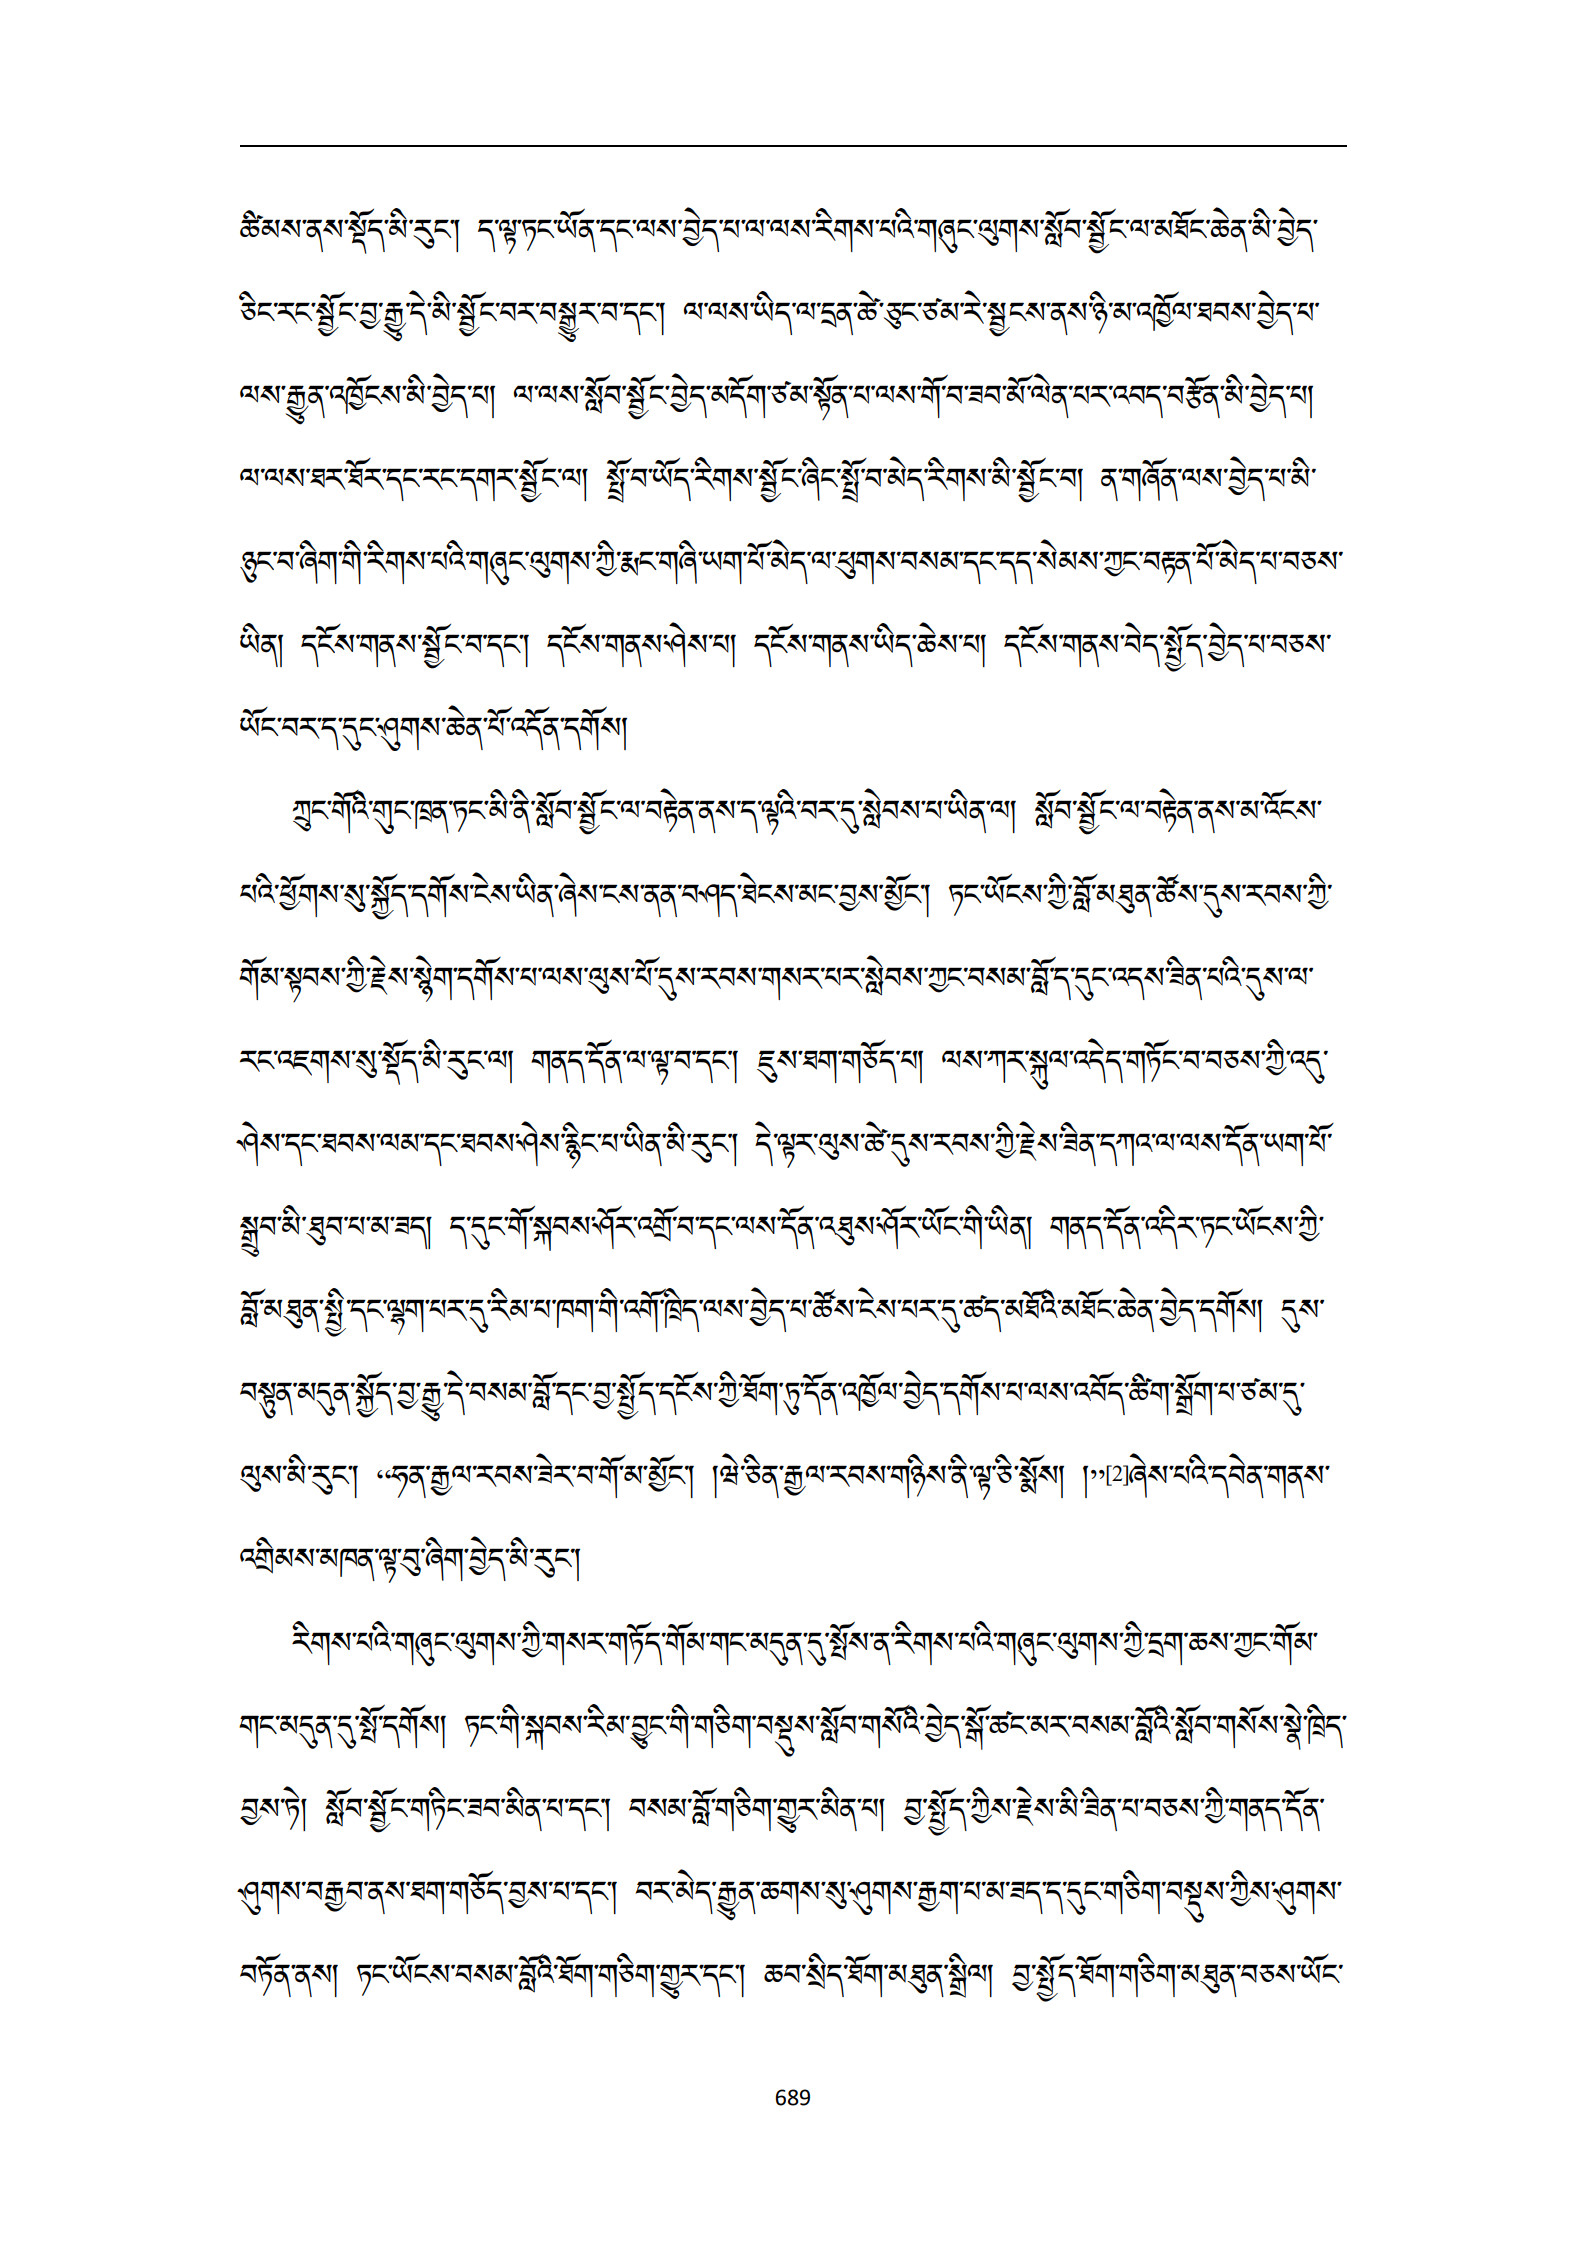 ཚིམས་ནས་སྡོད་མི་རུང་།  ད་ལྟ་ཏང་ཡོན་དང་ལས་བྱེད་པ་ལ་ལས་རིགས་པའི་གཞུང་ལུགས་སློབ་སྦྱོང་ལ་མཐོང་ཆེན་མི་བྱེད་
ཅིང་རང་སྦྱོང་བྱ་རྒྱུ་དེ་མི་སྦྱོང་བར་བསྒྱུར་བ་དང་།  ལ་ལས་ཡིད་ལ་དྲན་ཚེ་ཅུང་ཙམ་རེ་སྦྱངས་ནས་ཉི་མ་འཁྱོལ་ཐབས་བྱེད་པ་
ལས་རྒྱུན་འཁྱོངས་མི་བྱེད་པ།  ལ་ལས་སློབ་སྦྱོང་བྱེད་མདོག་ཙམ་སྟོན་པ་ལས་གོ་བ་ཟབ་མོ་ལེན་པར་འབད་བརྩོན་མི་བྱེད་པ།
ལ་ལས་ཐར་ཐོར་དང་རང་དགར་སྦྱོང་ལ།  སྤྲོ་བ་ཡོད་རིགས་སྦྱོང་ཞིང་སྤྲོ་བ་མེད་རིགས་མི་སྦྱོང་བ།  ན་གཞོན་ལས་བྱེད་པ་མི་
ཉུང་བ་ཞིག་གི་རིགས་པའི་གཞུང་ལུགས་ཀྱི་རྨང་གཞི་ཡག་པོ་མེད་ལ་ཕུགས་བསམ་དང་དད་སེམས་ཀྱང་བརྟན་པོ་མེད་པ་བཅས་
ཡིན།  དངོས་གནས་སྦྱོང་བ་དང་།  དངོས་གནས་ཤེས་པ།  དངོས་གནས་ཡིད་ཆེས་པ།  དངོས་གནས་བེད་སྤྱོད་བྱེད་པ་བཅས་
ཡོང་བར་ད་དུང་ཤུགས་ཆེན་པོ་འདོན་དགོས།
ཀྲུང་གོའི་གུང་ཁྲན་ཏང་མི་ནི་སློབ་སྦྱོང་ལ་བརྟེན་ནས་ད་ལྟའི་བར་དུ་སླེབས་པ་ཡིན་ལ།  སློབ་སྦྱོང་ལ་བརྟེན་ནས་མ་འོངས་
པའི་ཕྱོགས་སུ་སྐྱོད་དགོས་ངེས་ཡིན་ཞེས་ངས་ནན་བཤད་ཐེངས་མང་བྱས་མྱོང་།  ཏང་ཡོངས་ཀྱི་བློ་མཐུན་ཚོས་དུས་རབས་ཀྱི་
གོམ་སྟབས་ཀྱི་རྗེས་སྙེག་དགོས་པ་ལས་ལུས་པོ་དུས་རབས་གསར་པར་སླེབས་ཀྱང་བསམ་བློ་ད་དུང་འདས་ཟིན་པའི་དུས་ལ་
རང་འཇགས་སུ་སྡོད་མི་རུང་ལ།  གནད་དོན་ལ་ལྟ་བ་དང་།  ཇུས་ཐག་གཅོད་པ།  ལས་ཀར་སྐུལ་འདེད་གཏོང་བ་བཅས་ཀྱི་འདུ་
ཤེས་དང་ཐབས་ལམ་དང་ཐབས་ཤེས་རྙིང་པ་ཡིན་མི་རུང་།  དེ་ལྟར་ལུས་ཚེ་དུས་རབས་ཀྱི་རྗེས་ཟིན་དཀའ་ལ་ལས་དོན་ཡག་པོ་
སྒྲུབ་མི་ཐུབ་པ་མ་ཟད།  ད་དུང་གོ་སྐབས་ཤོར་འགྲོ་བ་དང་ལས་དོན་འཐུས་ཤོར་ཡོང་གི་ཡིན།  གནད་དོན་འདིར་ཏང་ཡོངས་ཀྱི་
བློ་མཐུན་སྤྱི་དང་ལྷག་པར་དུ་རིམ་པ་ཁག་གི་འགོ་ཁྲིད་ལས་བྱེད་པ་ཚོས་ངེས་པར་དུ་ཚད་མཐོའི་མཐོང་ཆེན་བྱེད་དགོས།  དུས་
བསྟུན་མདུན་སྐྱོད་བྱ་རྒྱུ་དེ་བསམ་བློ་དང་བྱ་སྤྱོད་དངོས་ཀྱི་ཐོག་ཏུ་དོན་འཁྱོལ་བྱེད་དགོས་པ་ལས་འབོད་ཚིག་སྒྲོག་པ་ཙམ་དུ་
ལུས་མི་རུང་།  “ཧན་རྒྱལ་རབས་ཟེར་བ་གོ་མ་མྱོང་།  །ཝེ་ཅིན་རྒྱལ་རབས་གཉིས་ནི་ལྟ་ཅི་སྨོས།  །”[2]ཞེས་པའི་དབེན་གནས་
འགྲིམས་མཁན་ལྟ་བུ་ཞིག་བྱེད་མི་རུང་།
རིགས་པའི་གཞུང་ལུགས་ཀྱི་གསར་གཏོད་གོམ་གང་མདུན་དུ་སྤོས་ན་རིགས་པའི་གཞུང་ལུགས་ཀྱི་དྲག་ཆས་ཀྱང་གོམ་
གང་མདུན་དུ་སྤོ་དགོས།  ཏང་གི་སྐབས་རིམ་བྱུང་གི་གཅིག་བསྡུས་སློབ་གསོའི་བྱེད་སྒོ་ཚང་མར་བསམ་བློའི་སློབ་གསོས་སྣེ་ཁྲིད་
བྱས་ཏེ།  སློབ་སྦྱོང་གཏིང་ཟབ་མིན་པ་དང་།  བསམ་བློ་གཅིག་གྱུར་མིན་པ།  བྱ་སྤྱོད་ཀྱིས་རྗེས་མི་ཟིན་པ་བཅས་ཀྱི་གནད་དོན་
ཤུགས་བརྒྱབ་ནས་ཐག་གཅོད་བྱས་པ་དང་།  བར་མེད་རྒྱུན་ཆགས་སུ་ཤུགས་རྒྱག་པ་མ་ཟད་ད་དུང་གཅིག་བསྡུས་ཀྱིས་ཤུགས་
བཏོན་ནས།  ཏང་ཡོངས་བསམ་བློའི་ཐོག་གཅིག་གྱུར་དང་།  ཆབ་སྲིད་ཐོག་མཐུན་སྒྲིལ།  བྱ་སྤྱོད་ཐོག་གཅིག་མཐུན་བཅས་ཡོང་
689